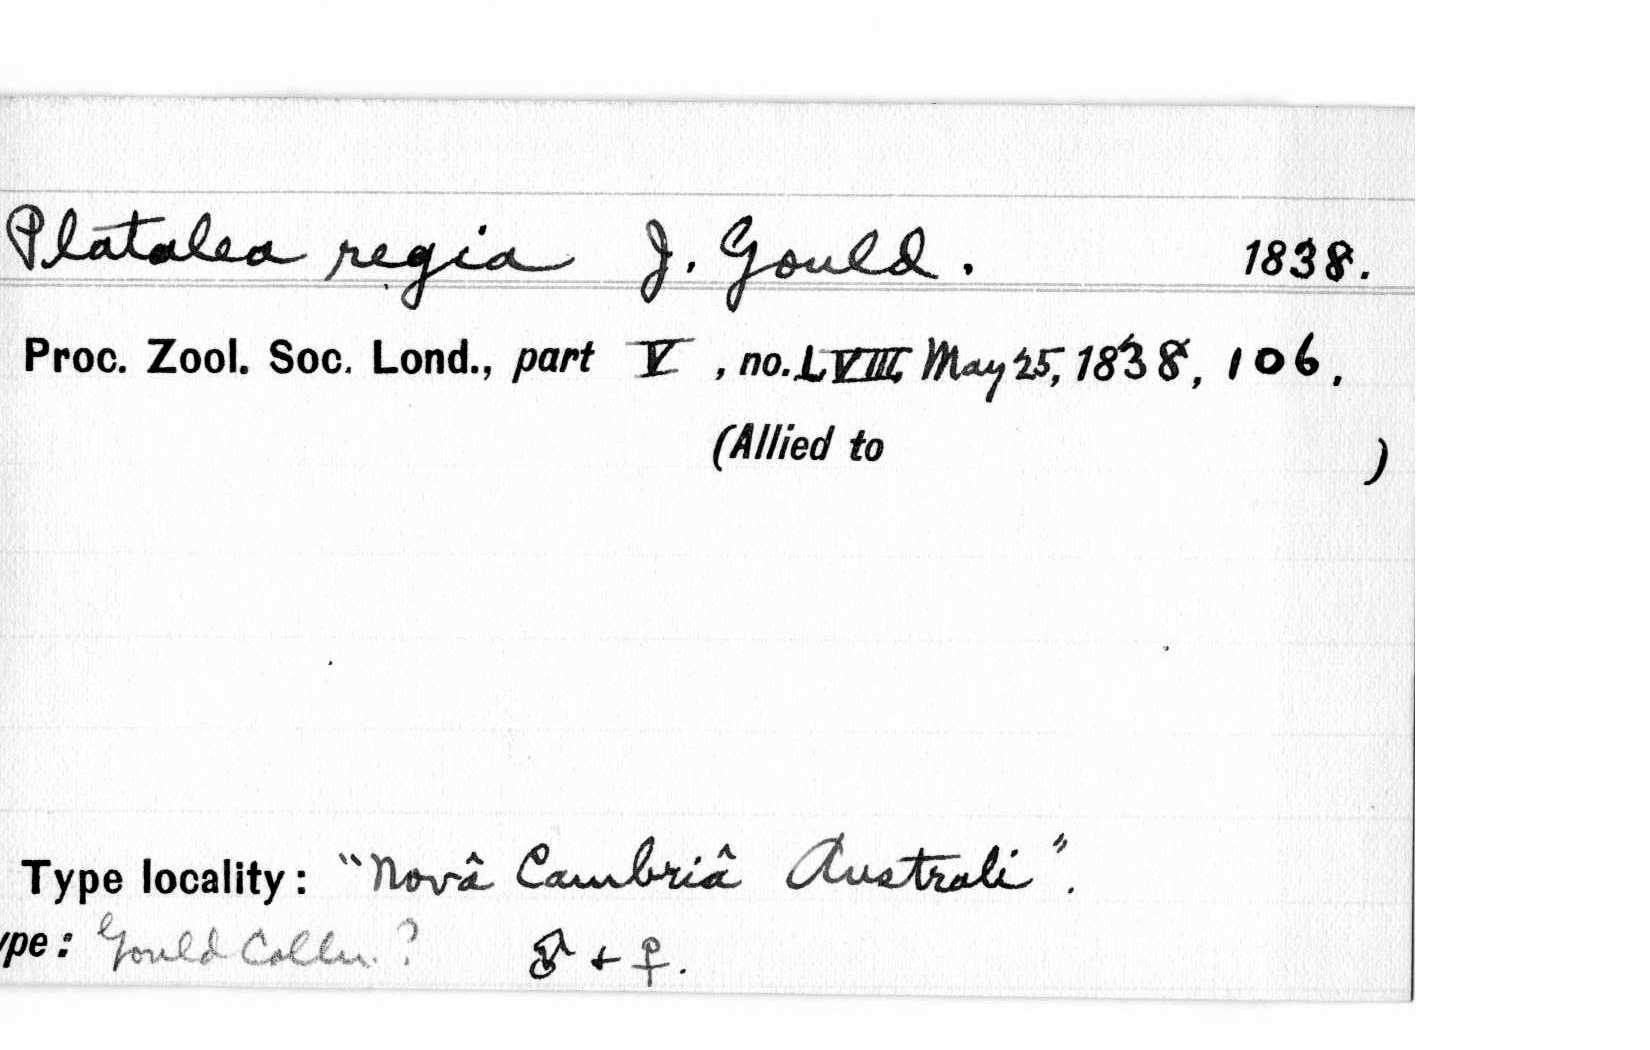 Platalea regia J. Gould. 1838.
Proc. Zool. Soc. Lond., part V, no. LVIII, May 25, 1838, 106.
(Allied to )
Type locality: "Novâ Cambriâ Australi".
ype: Gould Colln. ? ♂ + ♀.